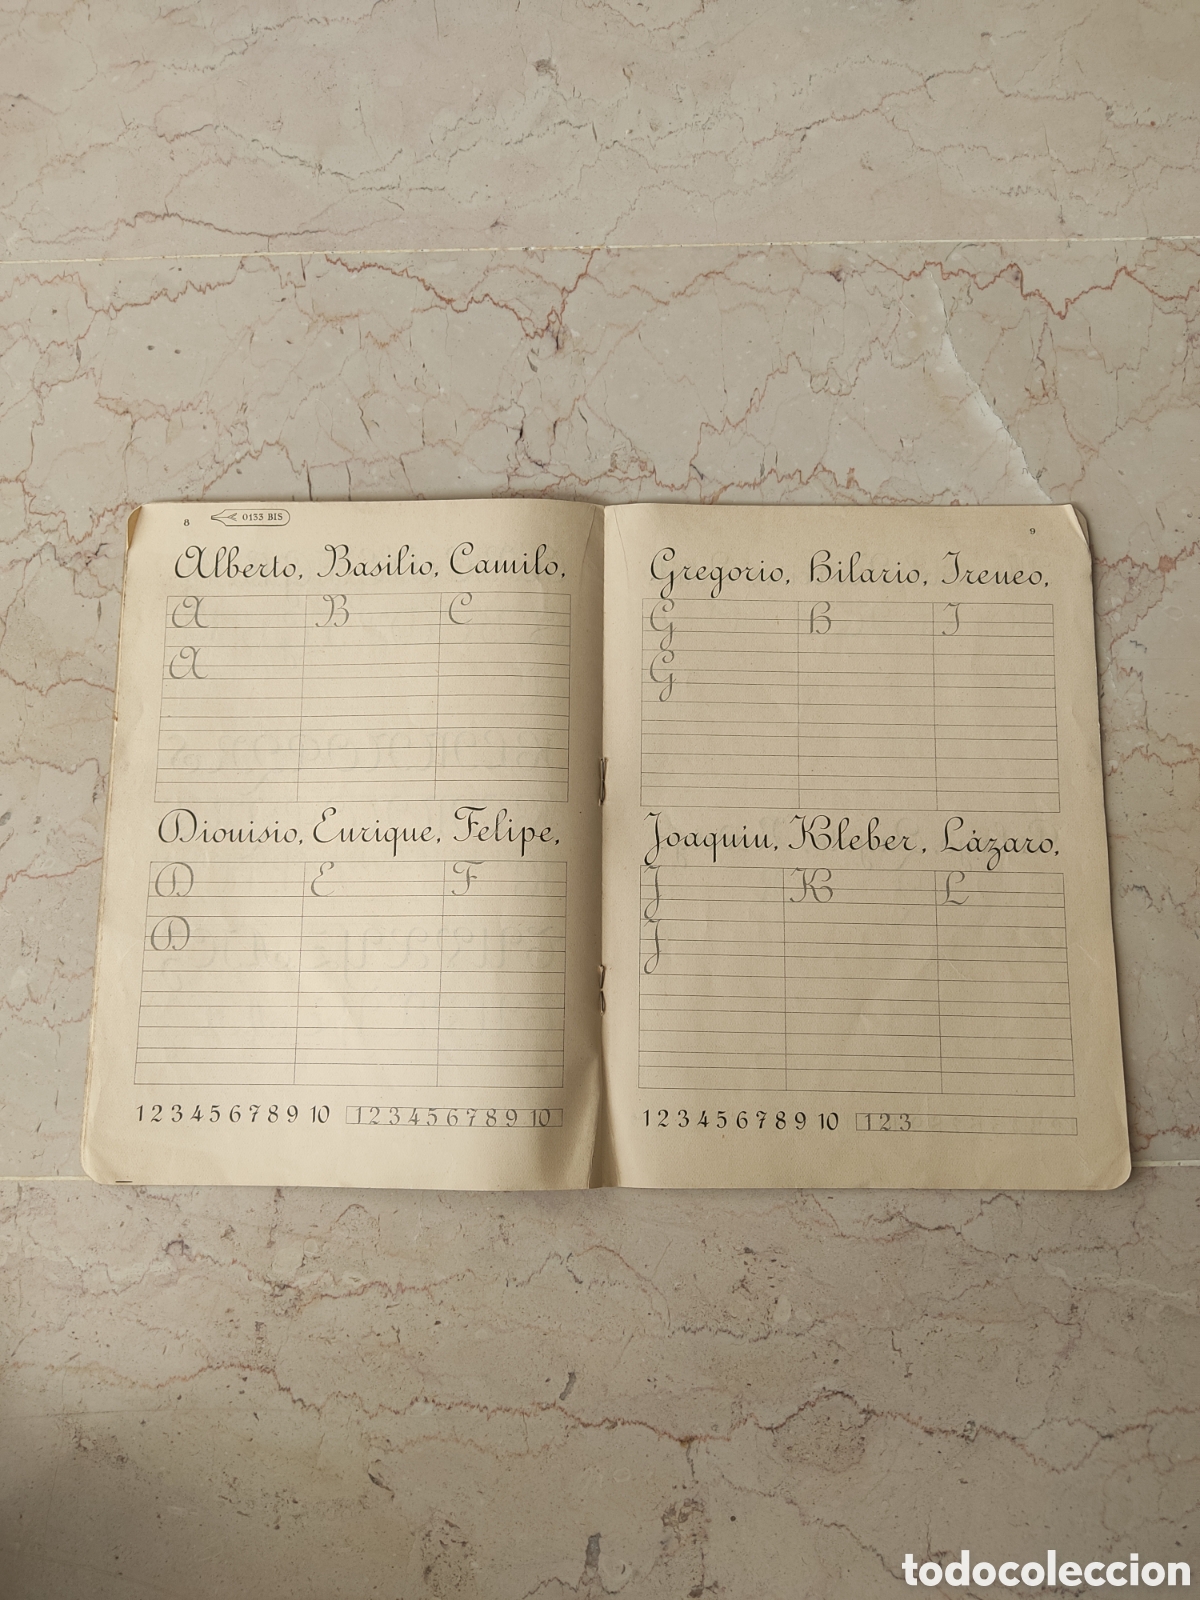 8 0133 BIS
Alberto, Basilio, Camilo,
A B C
A
Dionisio, Enrique, Felipe,
D E F
D
1 2 3 4 5 6 7 8 9 10 1 2 3 4 5 6 7 8 9 10
9
Gregorio, Hilario, Ireneo,
G H I
G
Joaquin, Kleber, Lázaro,
J K L
J
1 2 3 4 5 6 7 8 9 10 1 2 3
todocoleccion